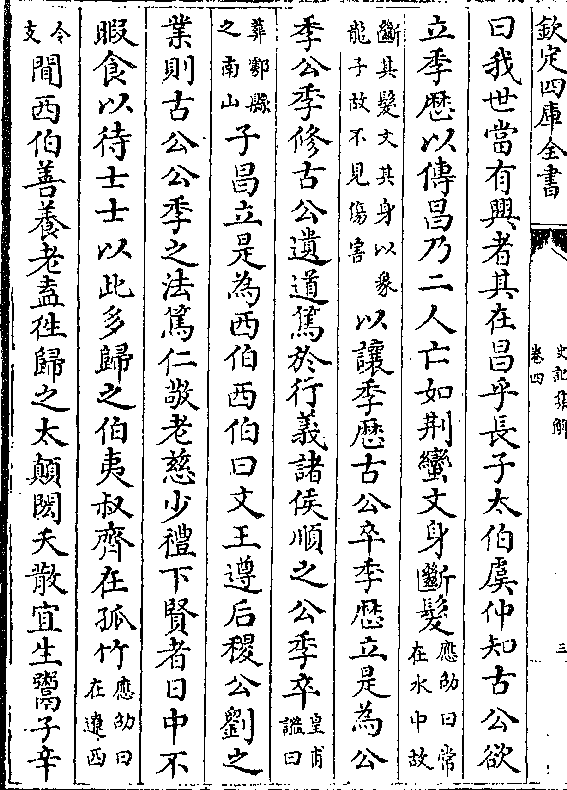 欽定四庫全書
史記集解
卷四
三
曰我世當有興者其在昌乎長子太伯虞仲知古公欲
立季歴以傳昌乃二人亡如荆蠻文身斷髮應劭曰常在水中故
斷其髮文其身以象龍子故不見傷害以讓季歴古公卒季歴立是為公
季公季修古公遺道篤於行義諸侯順之公季卒皇甫謐曰
葬鄠縣之南山子昌立是為西伯西伯曰文王遵后稷公劉之
業則古公公季之法篤仁敬老慈少禮下賢者日中不
暇食以待士士以此多歸之伯夷叔齊在孤竹應劭曰在遼西
令支聞西伯善養老盍徃歸之太顛閎夭散宜生鬻子辛